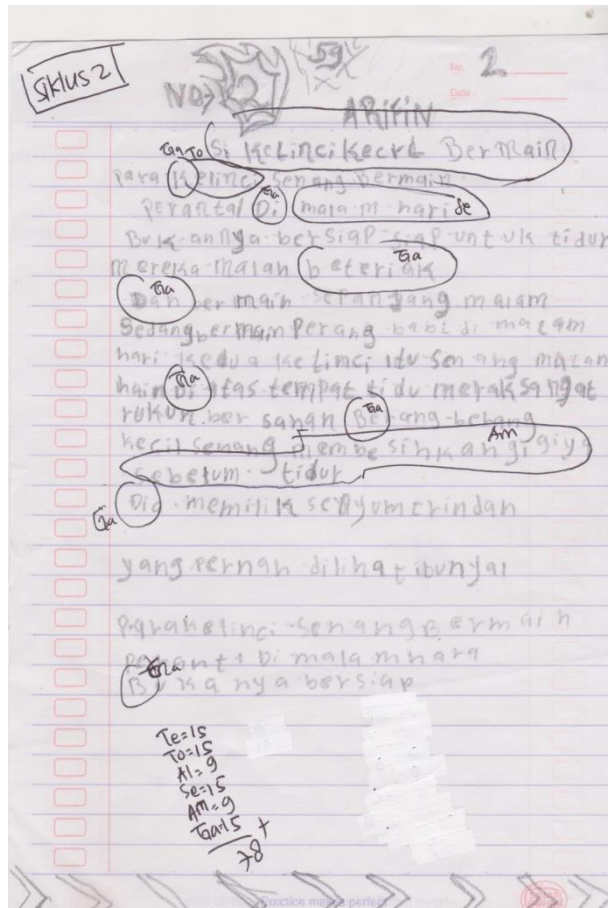 Siklus 2
59
No. 2
NO>2
Date:
ARIFIN
Ga To Si Kelinci Kecil Bermain
para Kelinci senang bermain
perantal Di malam hari Se
Bukannya bersiap-siap untuk tidur
mereka malah beteriak Ga
Ga Dan bermain sepanjang malam
Sedang bermain Perang babi di malam
hari kedua kelinci itu senang malan
hain Di atas tempat tidu merak sangat
rukun ber sanan Berang-berang
kecil senang membesihkan gigiya Am
sebelum tidur
Ga Dia memilik senyum erindan
yang pernah dilihat ibunya
Para kelinci senang Bermain
Di malam hara
Bukanya bersiap
Te=15
To=15
Al=9
Se=15
AM=9
Ga=15 +
78
Practice makes perfect